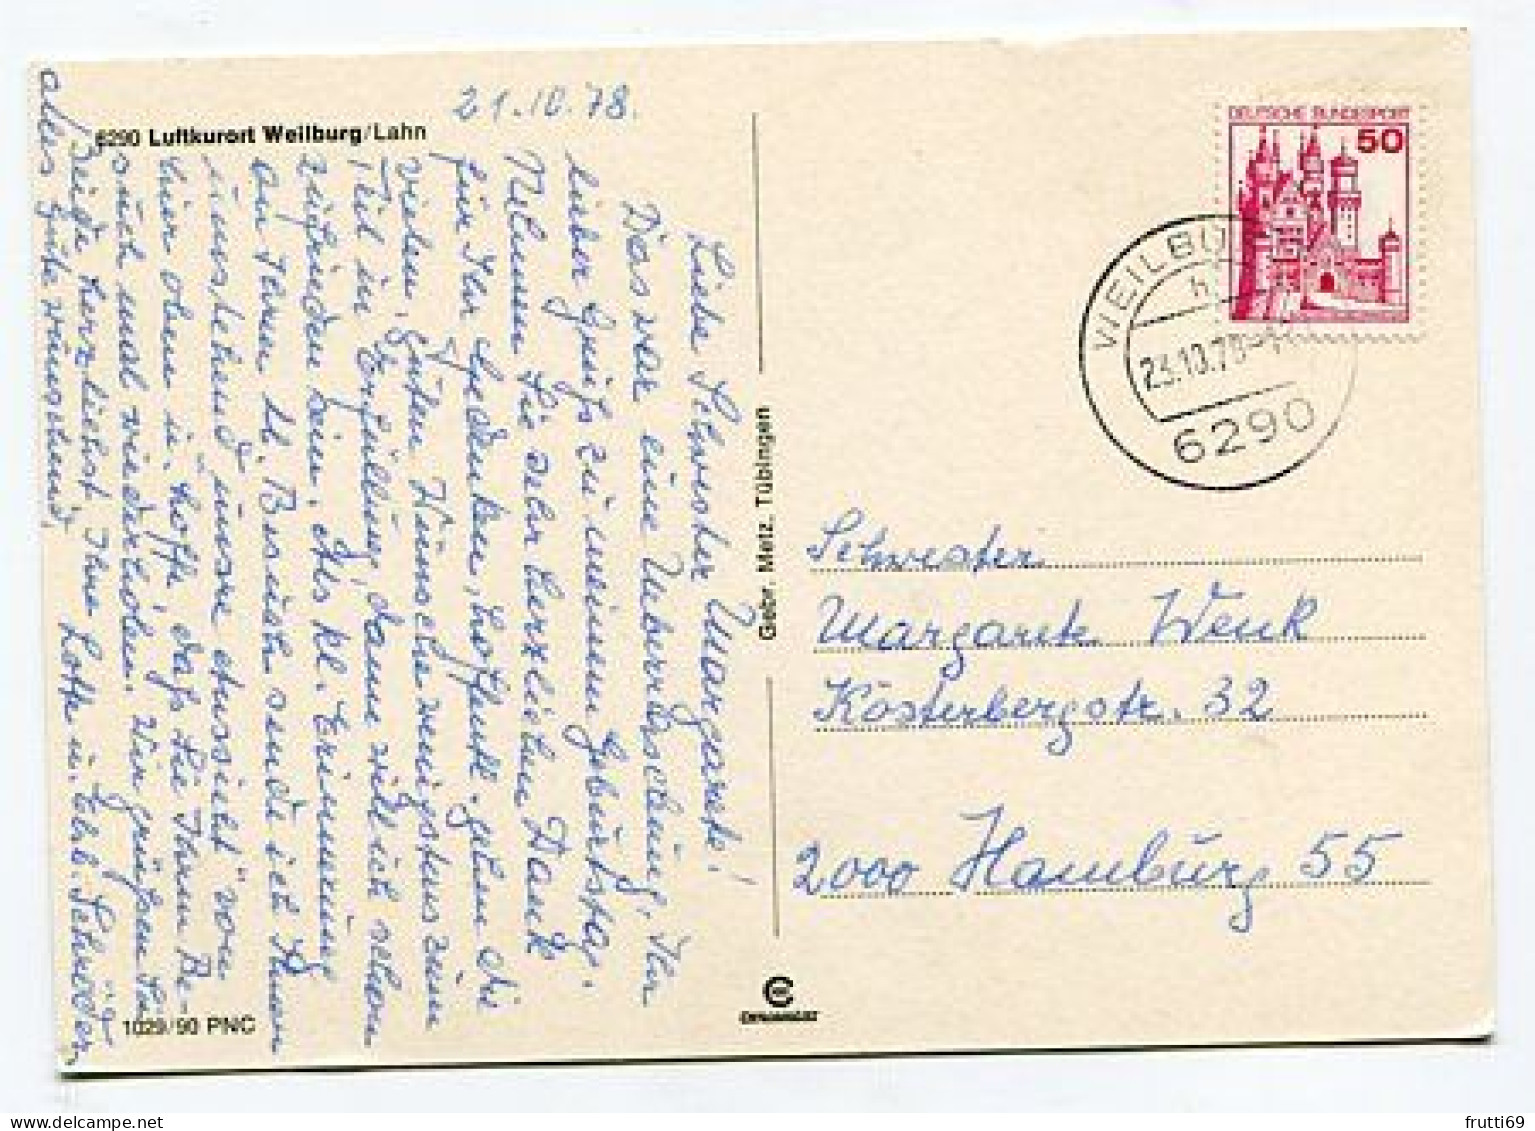 21.10.78.
6290 Luftkurort Weilburg/Lahn
Liebe Schwester Margarete!
Das war eine Ueberraschung, Ihr
lieber Gruß zu meinem Geburtstag.
Nehmen Sie sehr herzlichen Dank
für Ihr Gedenken, hoffentl. gehen die
vielen, guten Wünsche wenigstens zum
Teil in Erfüllung, dann will ich schon
zufrieden sein. Als kl. Erinnerung
an Ihren lb. Besuch sende ich Ihnen
umstehend unsere Aussicht" von
hier oben u. hoffe, daß Sie Ihren Be-
such mal wiederholen. Wir grüßen Sie
Beide herzlichst Ihre Lotte u. Elsb. Schröder,
alles Gute wünschend.
Gebr. Metz, Tübingen
1029/90 PNC
DEUTSCHE BUNDESPOST
50
WEILBU
h
23.10.78
6290
Schwester
Margarete Wenk
Kösterbergstr. 32
2000 Hamburg 55
frutti69